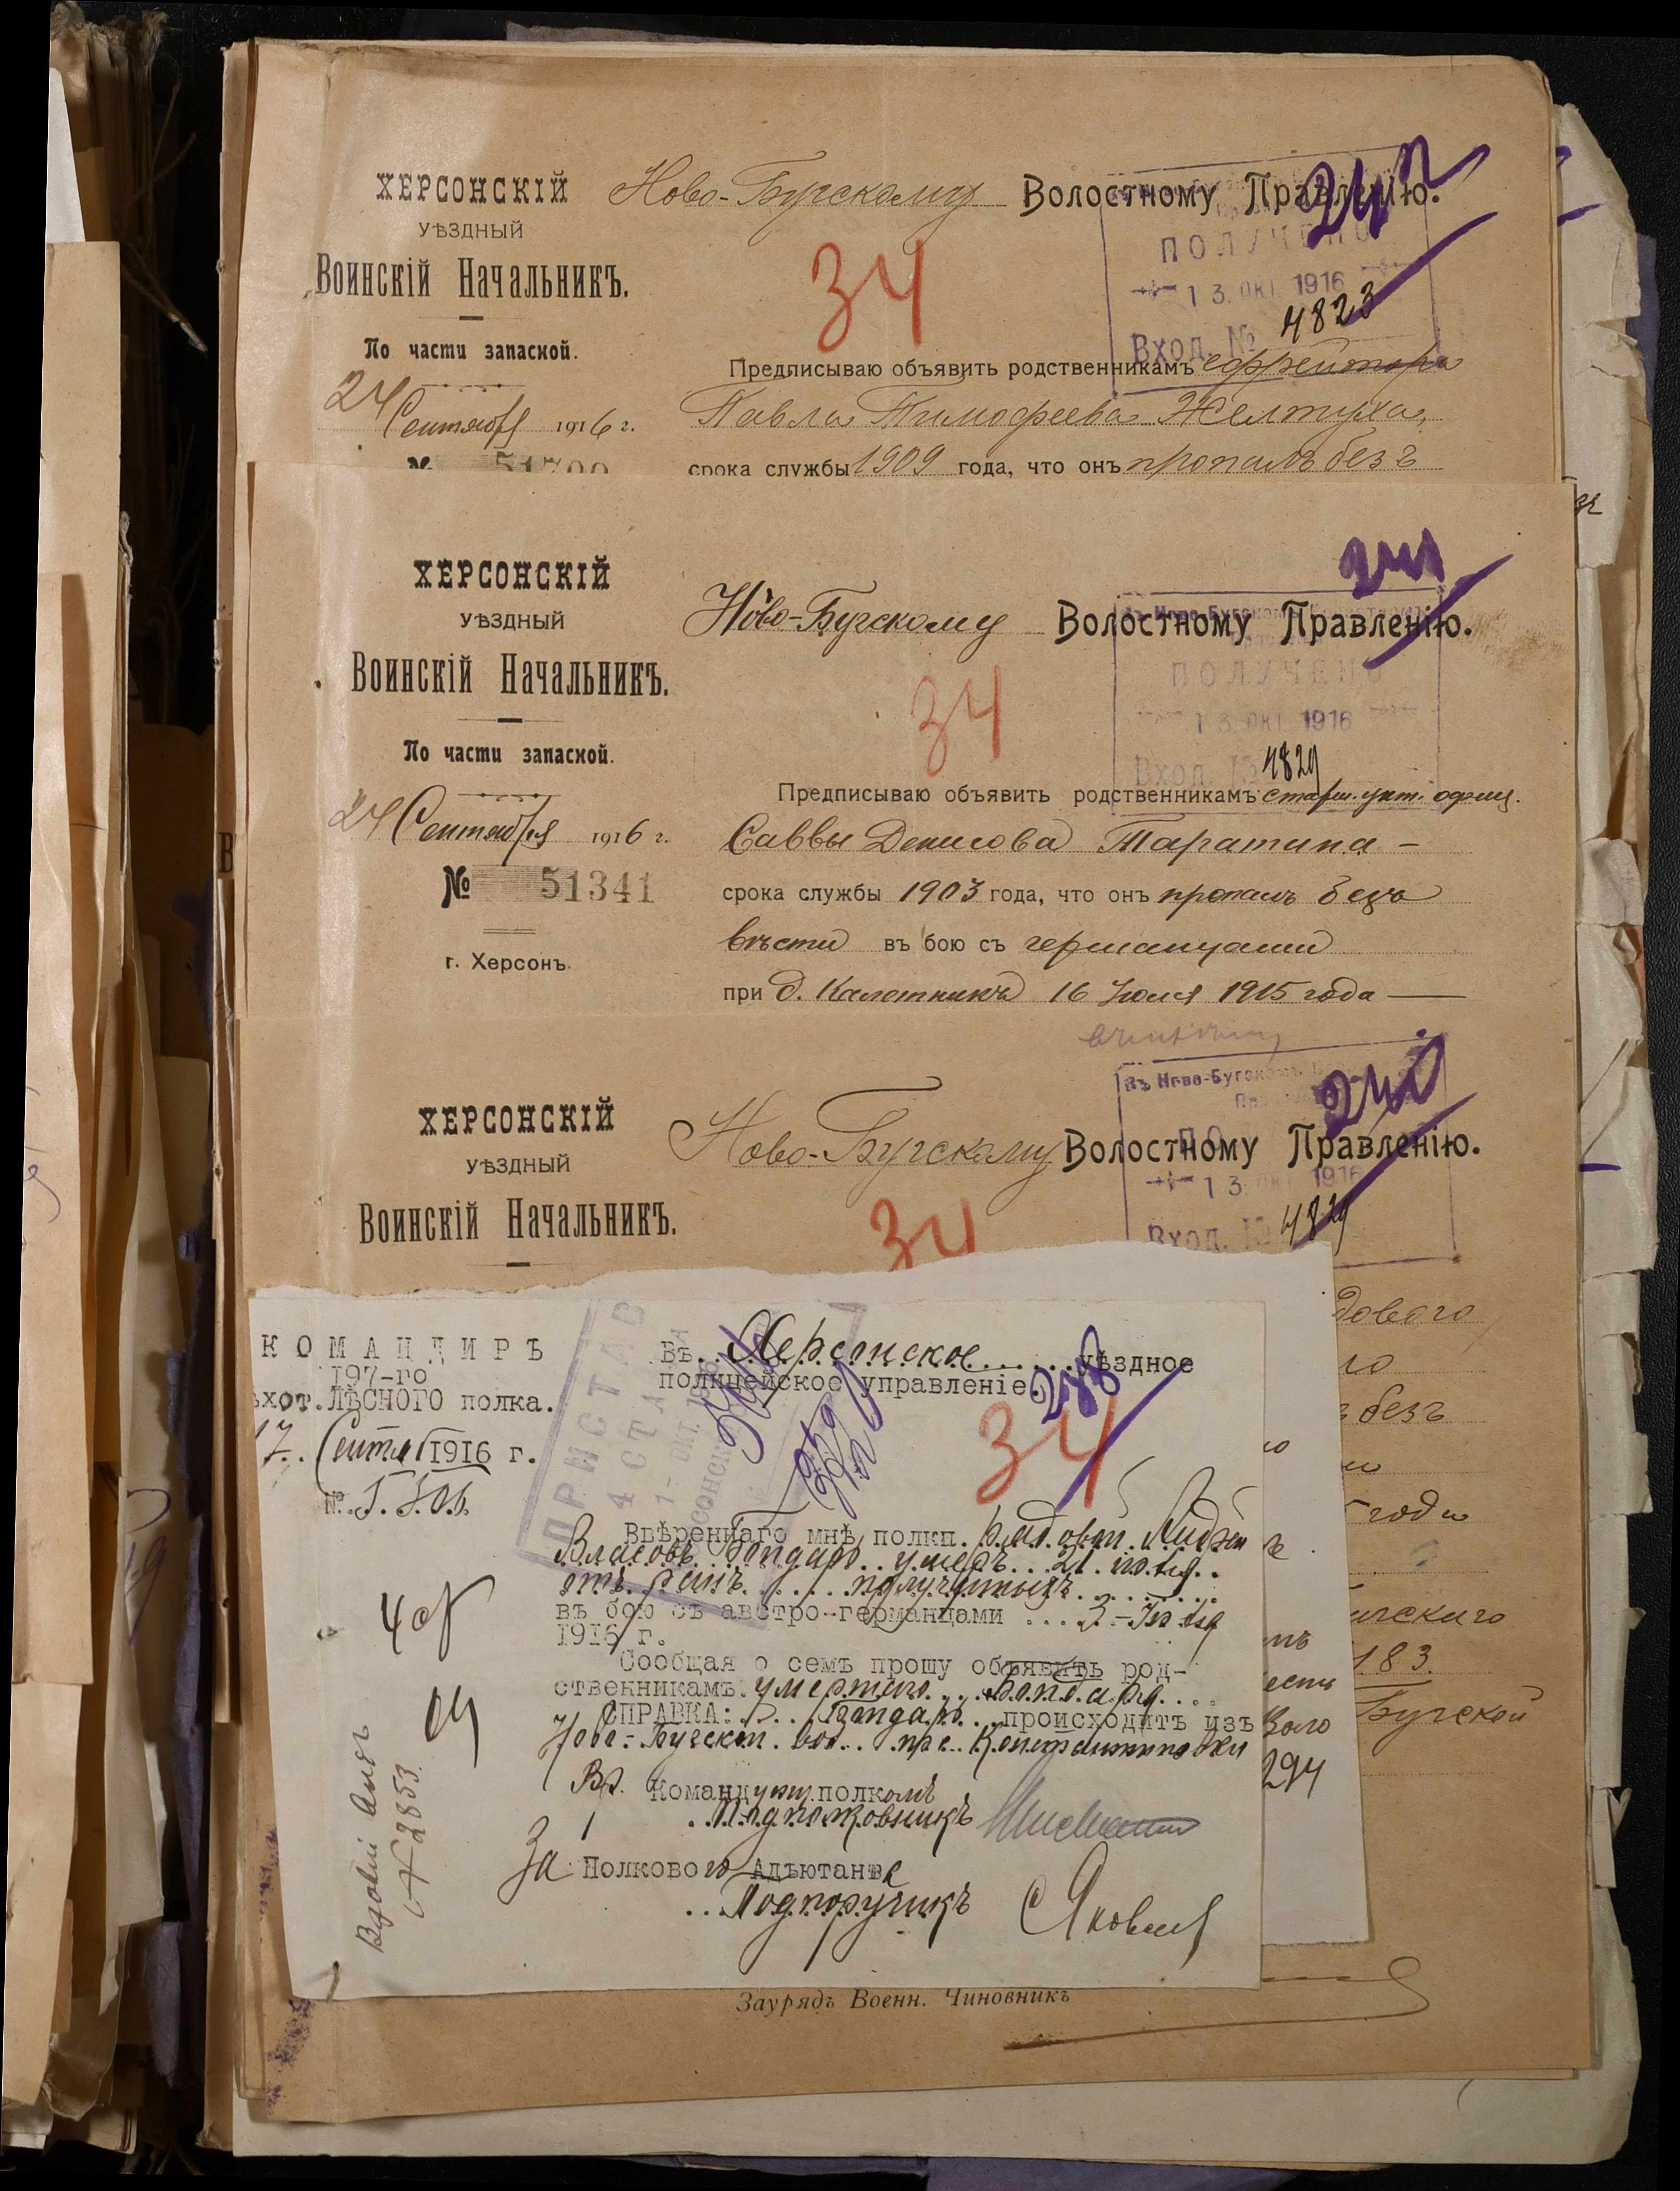 ХЕРСОНСКІЙ
УѢЗДНЫЙ
Воинскій Начальникъ.
По части запасной.
24 Сентября 1916 г.
Ново-Бугскому Волостному Правленію.
34
ПОЛУЧЕНО
13. ОКТ 1916
Вход. № 4823
Предписываю объявить родственникамъ ефрейтора
Павла Тимофеева Желтуха,
срока службы 1909 года, что онъ пропалъ безъ
ХЕРСОНСКІЙ
УѢЗДНЫЙ
Воинскій Начальникъ.
По части запасной.
24 Сентября 1916 г.
№ 51341
г. Херсонъ.
Ново-Бугскому Волостному Правленію.
34
ПОЛУЧЕНО
13 ОКТ 1916
Вход. 4829
Предписываю объявить родственникамъ старш. унт. офиц.
Саввы Денисова Таратина –
срока службы 1903 года, что онъ пропалъ безъ
вѣсти въ бою съ германцами
при д. Калетникъ 16 Іюля 1915 года —
ХЕРСОНСКІЙ
УѢЗДНЫЙ
Воинскій Начальникъ.
Ново-Бугскому Волостному Правленію.
34
Въ Ново-Бугскомъ
13 1916
Вход.
КОМАНДИРЪ
197-го
ѣхот. ЛѢСНОГО полка.
17. Сентяб 1916 г.
№
Въ Херсонское уѣздное
полицейское управленіе.
34
ПРИСТАВ
4 СТА
1- ОКТ.
Ввѣреннаго мнѣ полка рядовой
Власовъ Бондарь умеръ 21 іюля
отъ ранъ полученныхъ
въ бою съ австро-германцами 3-Іюля
1916 г.
Сообщая о семъ прошу объявить род-
ственникамъ умершаго Бондаря
СПРАВКА: Бондарь происходитъ изъ
Ново-Бугской вол. Константиновки
Вр. Командующ полкомъ
Подполковникъ
За Полкового Адъютанта
Подпоручикъ Яковлев
№ 2853
дового
безъ
годи
183.
Бугской
294
Заурядъ Военн. Чиновникъ